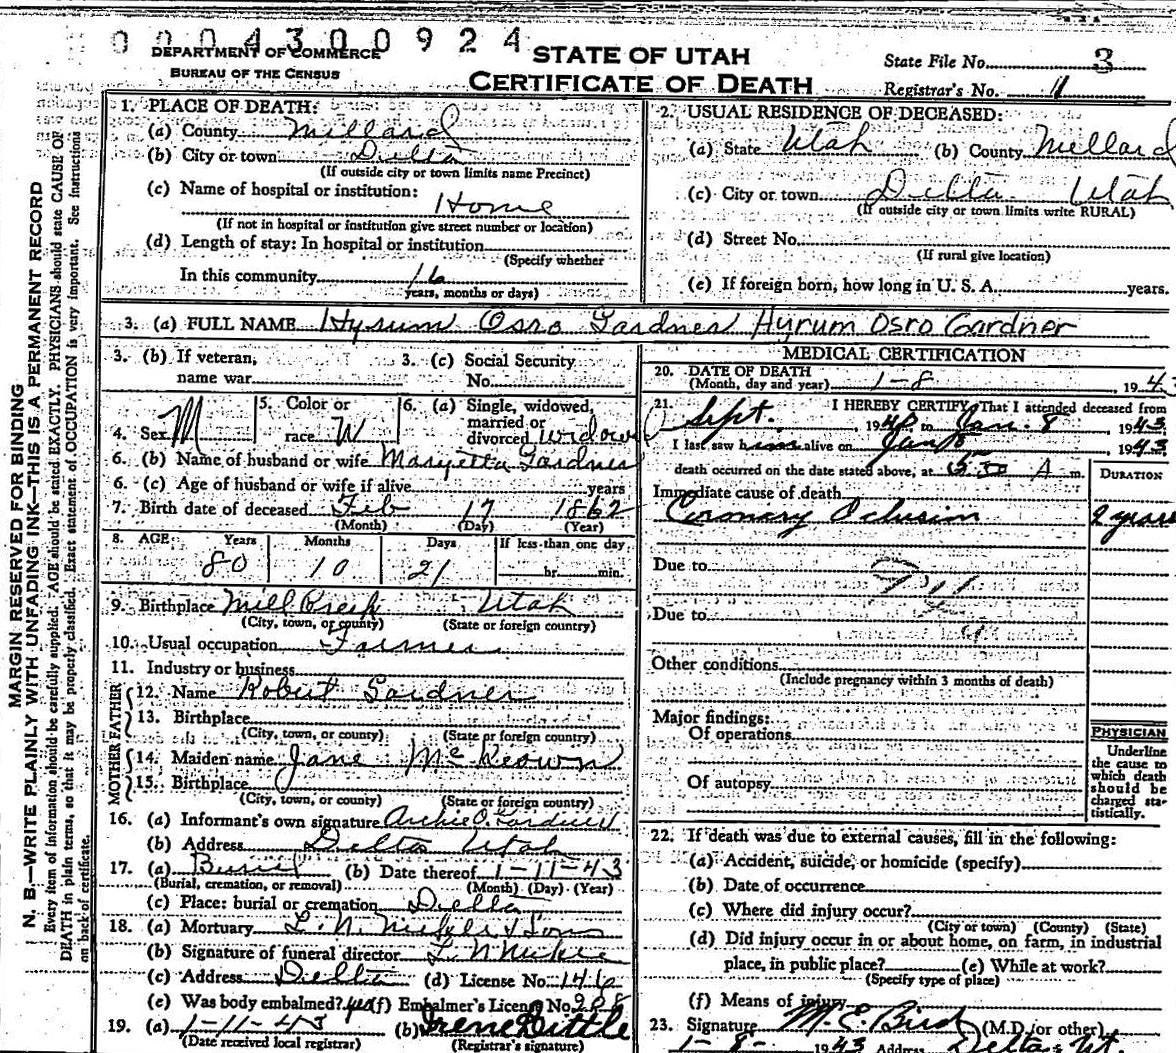 0004300924
DEPARTMENT OF COMMERCE
BUREAU OF THE CENSUS
STATE OF UTAH
CERTIFICATE OF DEATH
State File No. 3
Registrar's No. 11
MARGIN RESERVED FOR BINDING
N. B.—WRITE PLAINLY WITH UNFADING INK—THIS IS A PERMANENT RECORD
Every item of information should be carefully supplied. AGE should be stated EXACTLY. PHYSICIANS should state CAUSE OF
DEATH in plain terms, so that it may be properly classified. Exact statement of OCCUPATION is very important. See instructions
on back of certificate.
1. PLACE OF DEATH:
(a) County Millard
(b) City or town Delta
(If outside city or town limits name Precinct)
(c) Name of hospital or institution:
Home
(If not in hospital or institution give street number or location)
(d) Length of stay: In hospital or institution
(Specify whether
In this community 16
years, months or days)
2. USUAL RESIDENCE OF DECEASED:
(a) State Utah (b) County Millard
(c) City or town Delta Utah
(If outside city or town limits write RURAL)
(d) Street No.
(If rural give location)
(e) If foreign born, how long in U. S. A. years.
3. (a) FULL NAME Hyrum Osro Gardner Hyrum Osro Gardner
3. (b) If veteran, name war
3. (c) Social Security No.
4. Sex M
5. Color or race W
6. (a) Single, widowed, married or divorced widowed
6. (b) Name of husband or wife Maryetta Gardner
6. (c) Age of husband or wife if alive years
7. Birth date of deceased Feb 17 1862
(Month) (Day) (Year)
8. AGE Years Months Days If less than one day
80 10 21 hr. min.
9. Birthplace Mill Creek Utah
(City, town, or county) (State or foreign country)
10. Usual occupation Farmer
11. Industry or business
FATHER
12. Name Robert Gardner
13. Birthplace
(City, town, or county) (State or foreign country)
MOTHER
14. Maiden name Jane McKeown
15. Birthplace
(City, town, or county) (State or foreign country)
16. (a) Informant's own signature Archie O. Gardner
(b) Address Delta Utah
17. (a) Burial (b) Date thereof 1-11-43
(Burial, cremation, or removal) (Month) (Day) (Year)
(c) Place: burial or cremation Delta
18. (a) Mortuary L. N. & Sons
(b) Signature of funeral director L. N
(c) Address Delta (d) License No. 146
(e) Was body embalmed? yes (f) Embalmer's License No. 208
19. (a) 1-11-43 (b) Irene
(Date received local registrar) (Registrar's signature)
MEDICAL CERTIFICATION
20. DATE OF DEATH
(Month, day and year) 1-8, 194
21. I HEREBY CERTIFY, That I attended deceased from
Sept. 1940 to Jan. 8 1943
I last saw him alive on Jan 8, 1943
death occurred on the date stated above, at 5:30 A m.
DURATION
Immediate cause of death
Coronary Oclusion 2 years
Due to
Due to
Other conditions
(Include pregnancy within 3 months of death)
Major findings:
Of operations
Of autopsy
PHYSICIAN
Underline
the cause to
which death
should be
charged sta-
tistically.
22. If death was due to external causes, fill in the following:
(a) Accident, suicide, or homicide (specify)
(b) Date of occurrence
(c) Where did injury occur?
(City or town) (County) (State)
(d) Did injury occur in or about home, on farm, in industrial
place, in public place? (e) While at work?
(Specify type of place)
(f) Means of injury
23. Signature M. E. Bird (M.D. or other)
1-8- 1943 Address Delta, Ut.